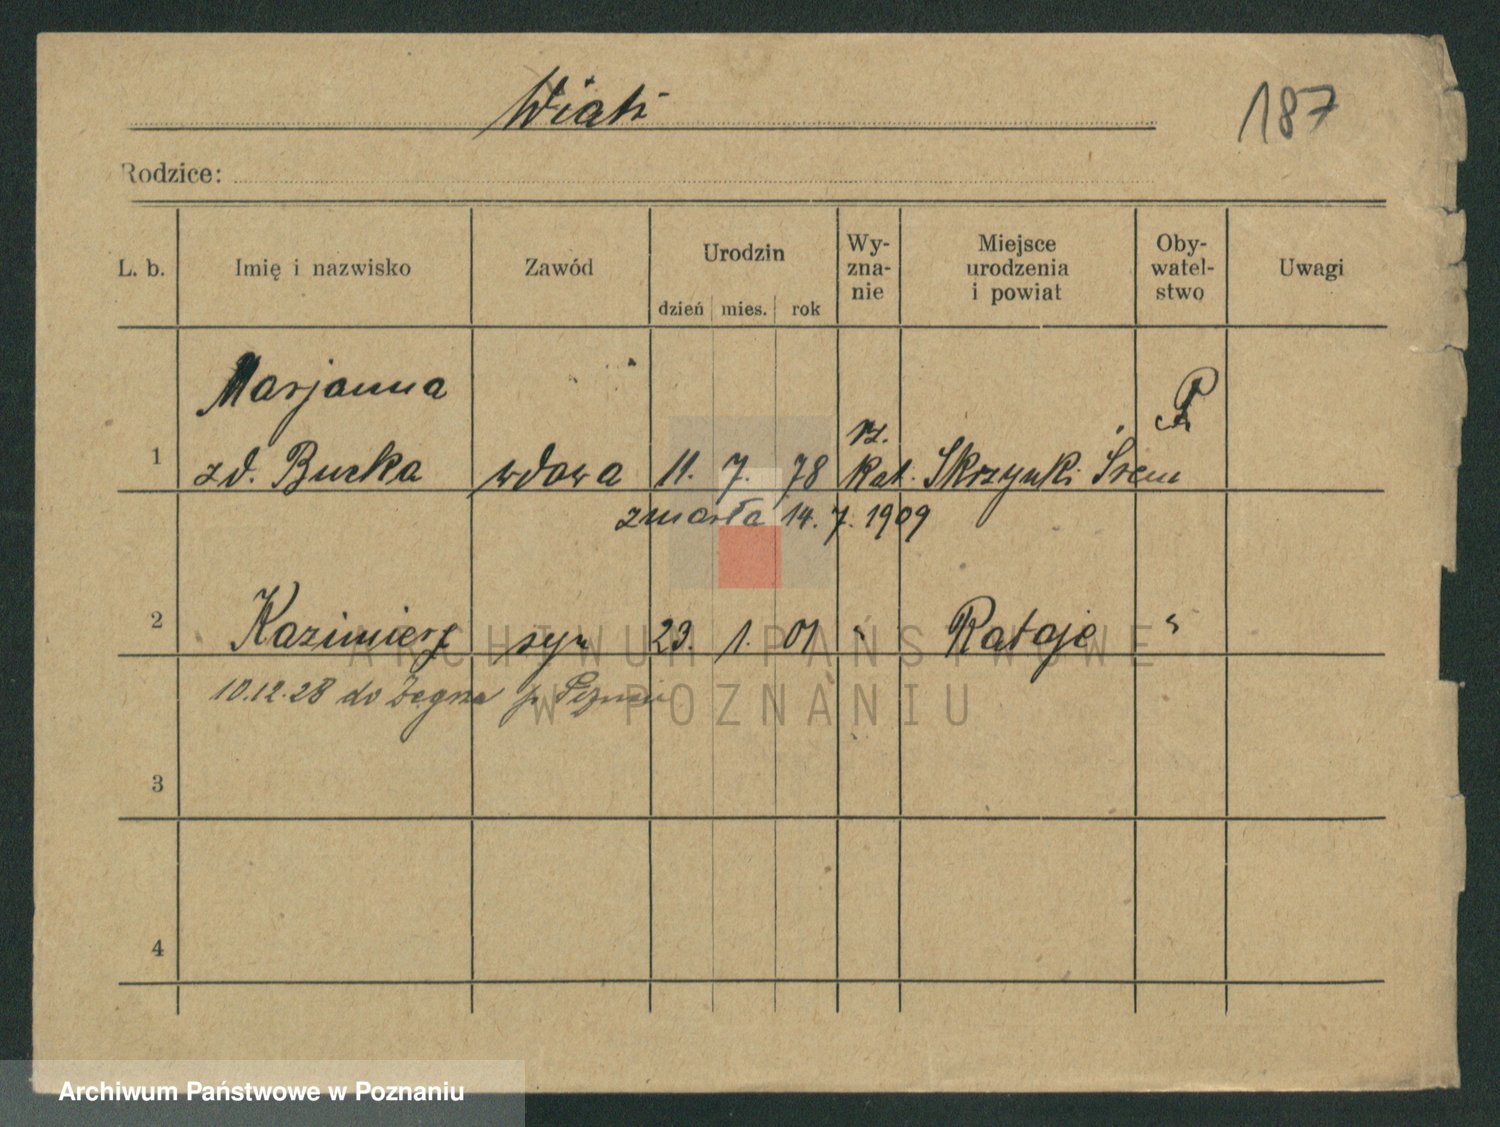 Wiatr
187
Rodzice:
L. b.
Imię i nazwisko
Zawód
Urodzin
dzień mies. rok
Wy-
zna-
nie
Miejsce
urodzenia
i powiat
Oby-
watel-
stwo
Uwagi
Marjanna
rz. P
1 zd. Burka wdowa 11. 7. 78 kat. Skrzynki Śrem
zmarła 14. 7. 1909
2 Kazimierz syn 23. 1. 01 " Rataje "
10.12.28 do Żegrza p. Poznań
3
4
ARCHIWUM PAŃSTWOWE
W POZNANIU
Archiwum Państwowe w Poznaniu